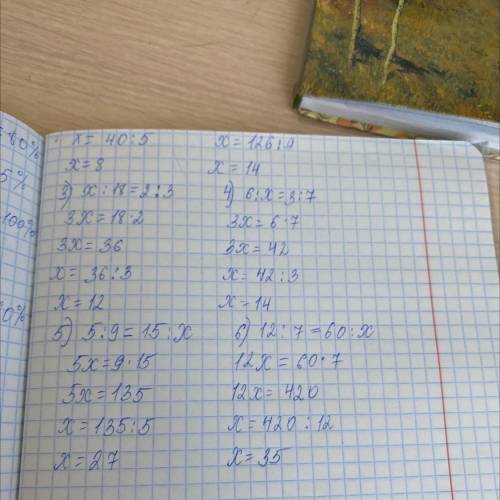 60%
5%
100%
0%
x = 40:5
x = 8
3) x:18=2:3
3x=18·2
3x=36
x=36:3
x=12
5) 5:9=15:x
5x=9·15
5x=135
x=135:5
x=27
x=126:9
x=14
4) 6:x=3:7
3x=6·7
3x=42
x=42:3
x=14
6) 12:7=60:x
12x=60·7
12x=420
x=420:12
x=35